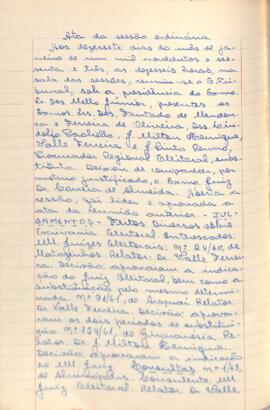 Ata da sessão ordinária
Aos dezessete dias do mês de ja-
neiro de um mil novecentos e ses-
senta e três, às dezesseis horas, na
sala das sessões, reuniu-se o E. Tri-
bunal, sob a presidência do Exmo.
Sr. Des. Mello Júnior, presentes os
Exmos. Srs. Des. Furtado de Mendon-
ça e Ferreira de Oliveira, Drs. Lin-
dolfo Paolliello, J. Milton Henriques,
Valle Ferreira e J. Pinto Renno,
Procurador Regional Eleitoral, subs-
tituto. Deixou de comparecer, por
motivo justificado, o Exmo. Juiz
Dr. Corrêa de Almeida. Aberta a
sessão, foi lida e aprovada a
ata da reunião anterior. - JUL-
GAMENTOS: - Feitos Diversos sobre
Escrivania Eleitoral. Interessados:
MM. Juízes Eleitorais: Nº 84/60, de
Matozinhos. Relator: Dr. Valle Ferrei-
ra. Decisão: aprovaram a indica-
ção do Juiz Eleitoral, bem como a
substituição pelo mesmo determi-
nada. Nº 91/61, de Araçuaí. Relator:
Dr. Valle Ferreira. Decisão: aprova-
ram os dois períodos de substitui-
ção. Nº 124/61, de Re-
lator: Dr. J. Milton Henriques.
Decisão: aprovaram a indicação
do MM. Juiz. Consultas nº 1/63,
de Consulente: MM.
Juiz Eleitoral. Relator: Dr. Valle